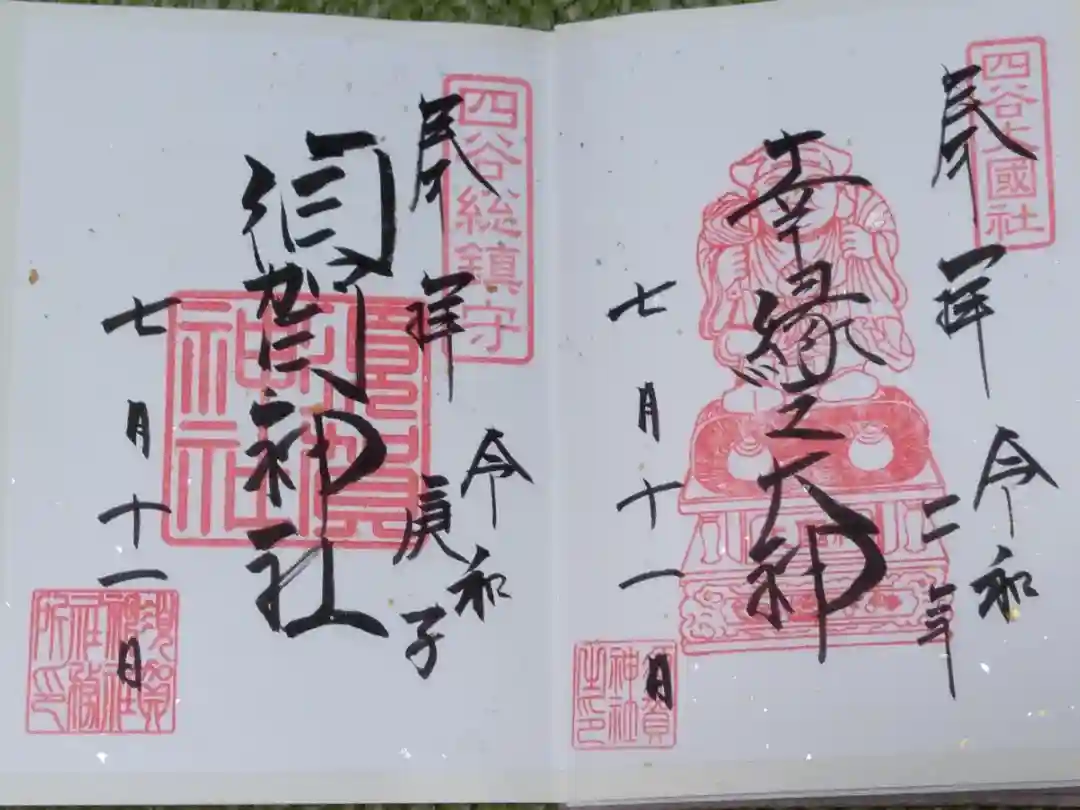 四谷大國社
奉拝
令和
二年
幸縁之大神
七月十一日
須賀神社之印
四谷総鎮守
奉拝
令和
庚子
須賀神社
須賀神社
七月十一日
須賀神社